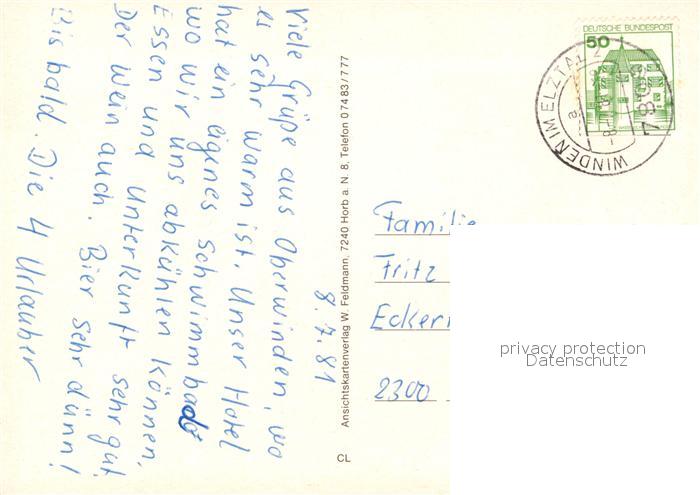 8.7.81
Viele Grüße aus Oberwinden, wo
es sehr warm ist. Unser Hotel
hat ein eigenes Schwimmbad
wo wir uns abkühlen können,
Essen und Unterkunft sehr gut,
Der Wein auch. Bier sehr dünn!
Bis bald. Die 4 Urlauber
Ansichtskartenverlag W. Feldmann, 7240 Horb a. N. 8, Telefon 0 74 83 / 7 77
CL
DEUTSCHE BUNDESPOST
50
WINDEN IM ELZTAL 2
7809
a
Familie
Fritz
Eckern
2300
privacy protection
Datenschutz